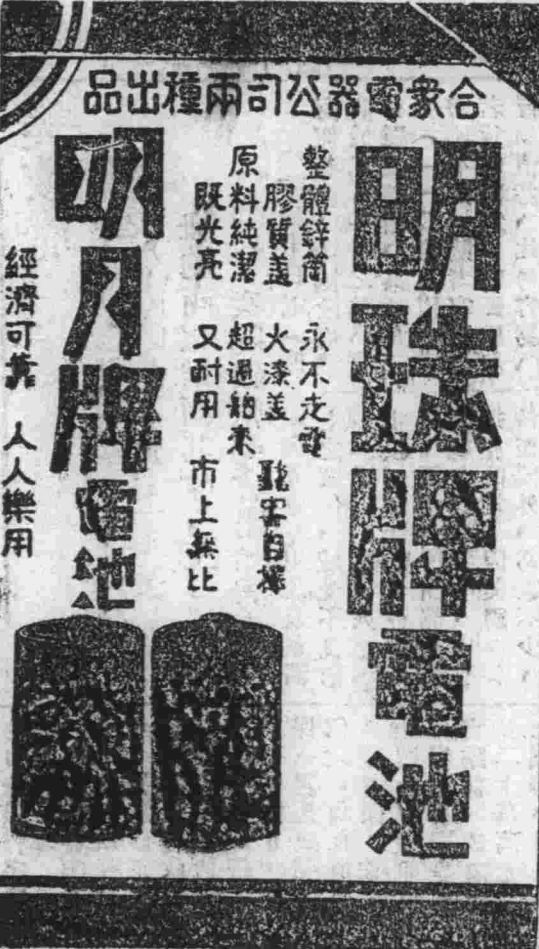 合衆電器公司兩種出品
明珠牌電池
整體鋅筒 永不走電
膠質蓋 火漆蓋 聽客自擇
原料純潔 超過舶來
既光亮 又耐用 市上無比
明月牌電池
經濟可靠 人人樂用